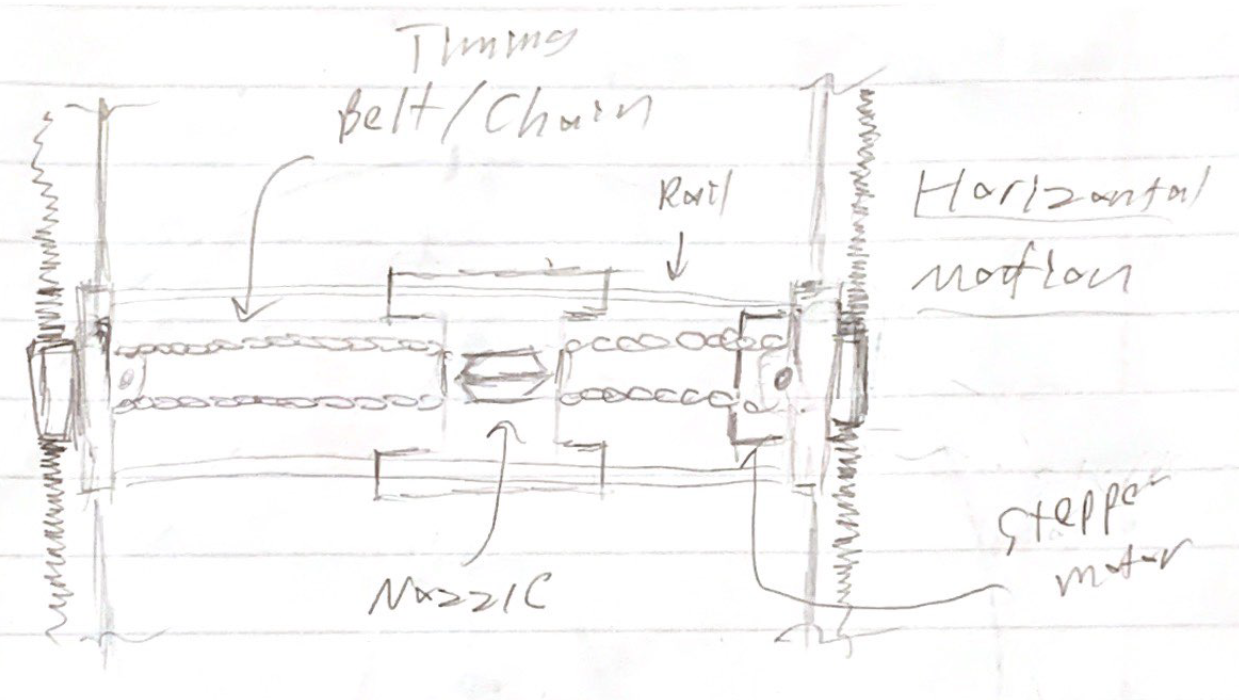 Timing
Belt/Chain
Rail
Horizontal
motion
Nozzle
Stepper
motor